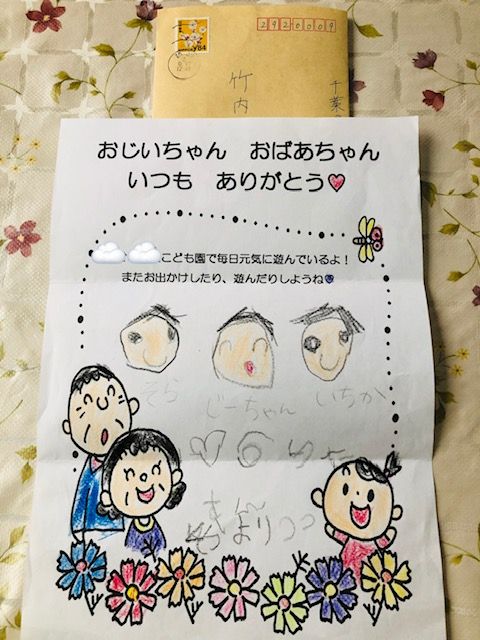 84
2920009
千葉
竹内
おじいちゃん　おばあちゃん
いつも　ありがとう♥
こども園で毎日元気に遊んでいるよ！
またお出かけしたり、遊んだりしようね
そら　じーちゃん　いちか
より